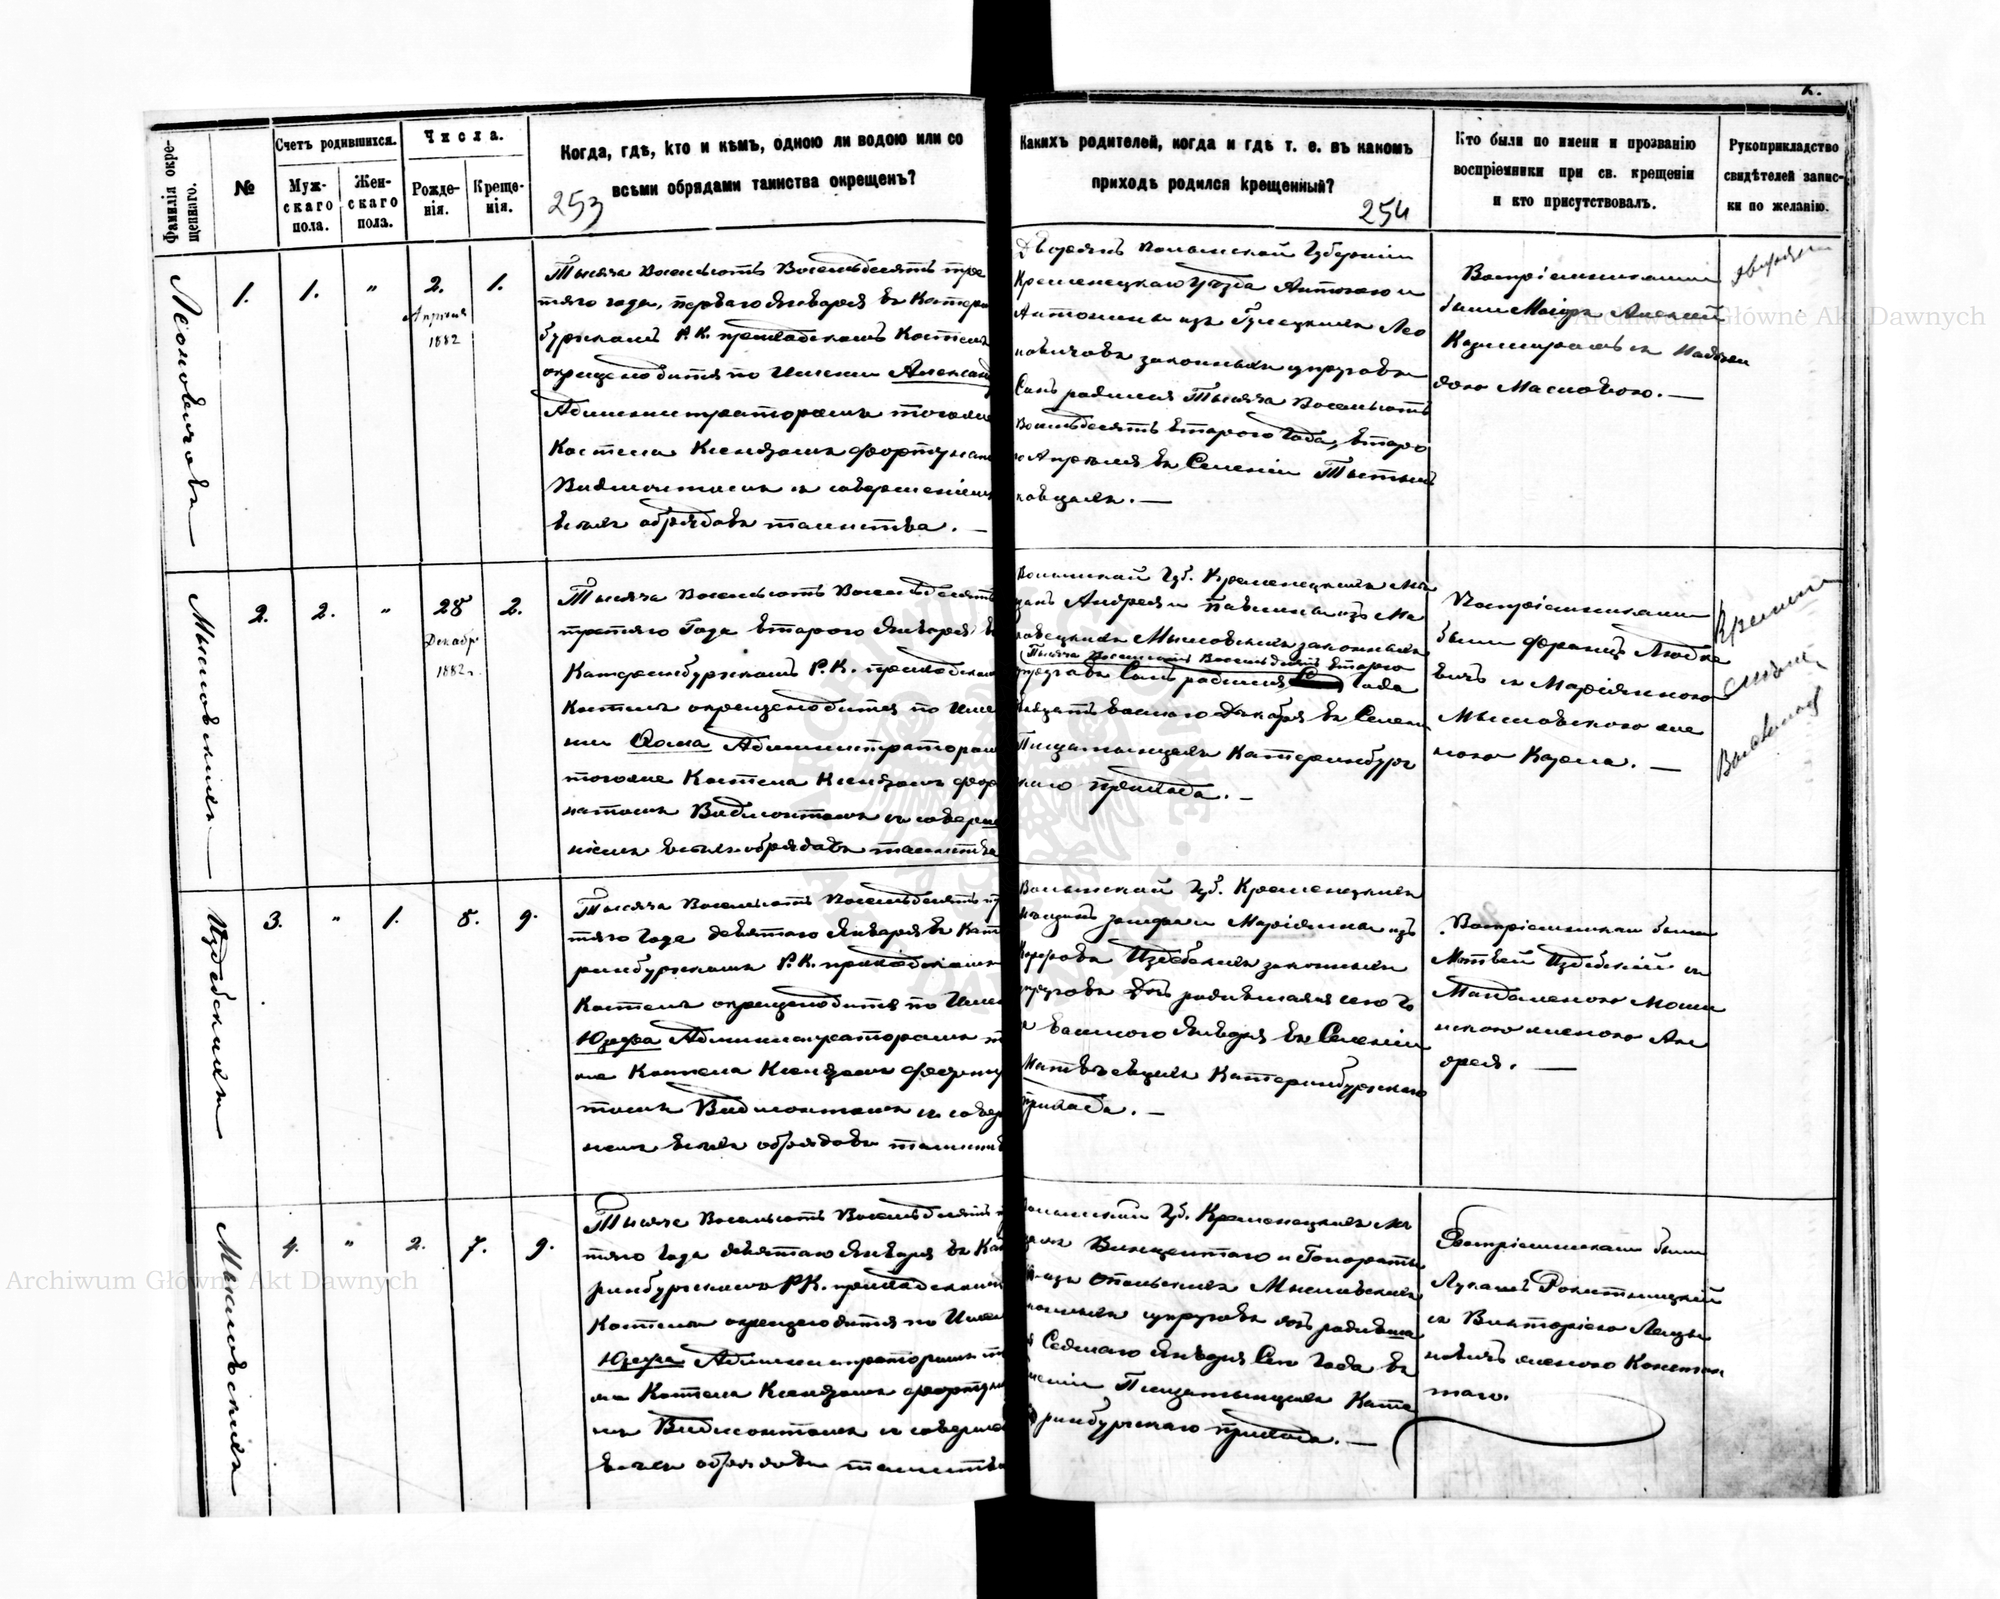 Фамилія окре-
щеннаго.
№
Счетъ родившихся.
Муж-
скаго
пола.
Жен-
скаго
пола.
Числа.
Рожде-
нія.
Креще-
нія.
Когда, гдѣ, кто и кѣмъ, одною ли водою или со
всѣми обрядами таинства окрещенъ?
253
Какихъ родителей, когда и гдѣ т. е. въ какомъ
приходѣ родился крещенный?
254
Кто были по имени и прозванію
воспріемники при св. крещеніи
и кто присутствовалъ.
Рукоприкладство
свидѣтелей запис-
ки по желанію.
Леоновичовъ
1. 1. " 2. 1.
Апрѣля
1882
Тысяча Восемьсотъ Восемьдесятъ тре
тяго года, перваго Января въ Катери
бургскомъ Р. К. приходскомъ Костелѣ
окрещено дитя по Имени Александ
Администраторомъ тогоже
Костела Ксендзомъ Фортунат
Видмонтомъ съ совершеніемъ
всѣхъ обрядовъ таинства. —
Дворянъ Волынской Губерніи
Кременецкаго Уѣзда Антонаго и
Антонины изъ
новичовъ законныхъ супруговъ
Сынъ родился Тысяча Восемьсотъ
Восемьдесятъ втораго Года, второ
Апрѣля въ Селеніи
ковцахъ. —
Воспріемниками
были Маіоръ Алексѣй
съ Надеж
дою Масловою. —
Мысловскихъ
2. 2. " 28 2.
Декабр
1882 г.
Тысяча Восемьсотъ Восемьдесятъ
третяго Года втораго Января въ
Катеринбургскомъ Р. К. приходском
Костелѣ окрещено дитя по Име
ни Ѳома Администраторомъ
тогоже Костела Ксендзомъ Фор
натомъ Видмонтомъ съ соверше
ніемъ всѣхъ обрядовъ таинства
Волынской Губ. Кременецкихъ Мѣ
щанъ Андрея и Павлины изъ Ма
Мысловскихъ законныхъ
Тысяча Восемьсотъ Восемьдесятъ втораго
супруговъ Сынъ родился Года
двадцать восьмаго Декабря въ Селен
Пищатынцахъ Катеринбург
скаго прихода. —
Воспріемниками
были Францъ
вичъ съ Маріянною
Мысловскою же
ною Карла. —
Издебскихъ
3. " 1. 8. 9.
Тысяча Восемьсотъ Восемьдесятъ тр
тяго Года девятаго Января въ Кат
ринбургскомъ Р. К. приходскомъ
Костелѣ окрещено дитя по Имен
Юзефа Администраторомъ т
же Костела Ксендзомъ Фортун
томъ Видмонтомъ съ совер
немъ всѣхъ обрядовъ таинств
Волынской Губ. Кременецкихъ
Мѣщанъ и Маріянны изъ
Издебскихъ законныхъ
супруговъ Дочь родившаяся сего Го
восьмаго Января въ Селеніи
Матвѣевцахъ Катеринбургскаго
прихода. —
Воспріемниками были
Матвѣй Издебскій съ
Магдаленою
женою Ан
дрея. —
Мысловскихъ
4. " 2. 7. 9.
Тысяча Восемьсотъ Восемьдесятъ т
тяго Года девятаго Января въ Кат
ринбургскомъ Р. К. приходскомъ
Костелѣ окрещено дитя по Имен
Юзефа Администраторомъ т
же Костела Ксендзомъ Фортун
мъ Видмонтомъ съ соверше
всѣхъ обрядовъ таинства
Волынской Губ. Кременецкихъ Мѣ
щанъ Винцентаго и Гонораты
изъ Мысловскихъ
конныхъ супруговъ дочь родивша
Седмаго Января Сего Года въ
леніи Пищатынцахъ Кате
ринбургскаго прихода. —
Воспріемниками были
Лукашъ Рокитницкій
съ Викторіею
женою Констан
таго.
Archiwum Główne Akt Dawnych
Archiwum Główne Akt Dawnych
ARCHIWUM GŁÓWNE AKT DAWNYCH